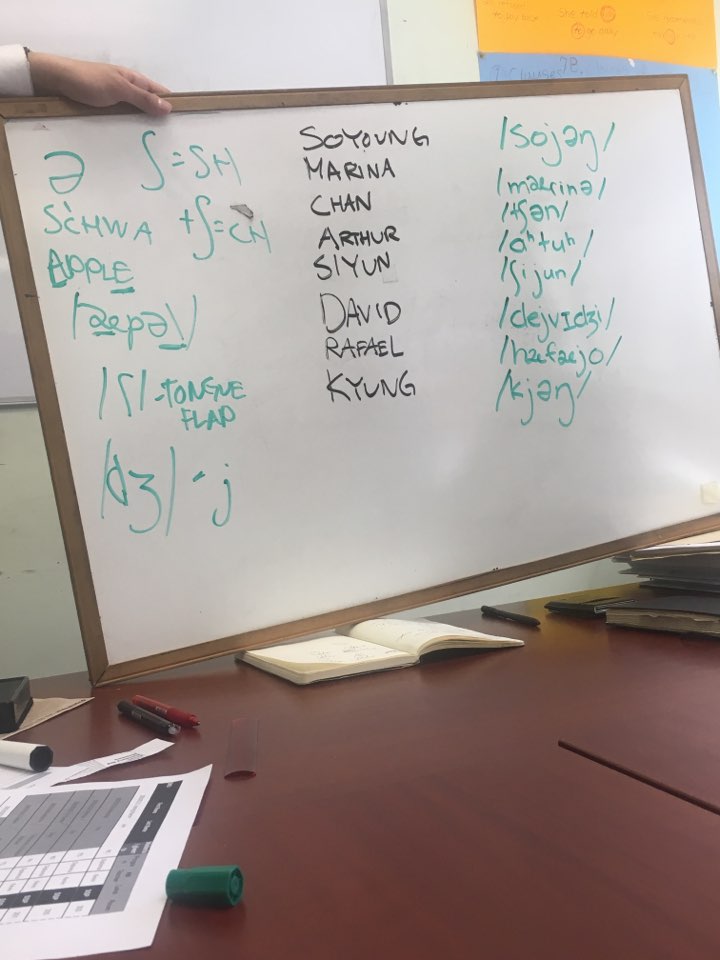 ə
ʃ = SH
SCHWA
tʃ = CH
APPLE
/æpəl/
/ɾ/ - TONGUE
FLAP
/dʒ/ - j
SOYOUNG
MARINA
CHAN
ARTHUR
SIYUN
DAVID
RAFAEL
KYUNG
/sojəŋ/
/mærinə/
/tʃən/
/ɑʰtuʰ/
/ʃijun/
/dejvɪdʒi/
/hæfæjo/
/kjəŋ/
She told
to go away